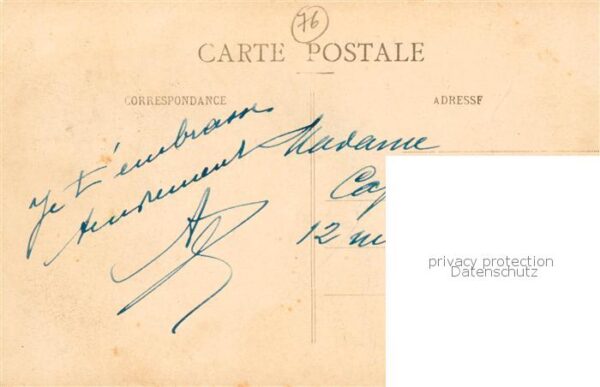 76
CARTE POSTALE
CORRESPONDANCE
ADRESSE
Je t'embrasse
tendrement
Madame
12
privacy protection
Datenschutz